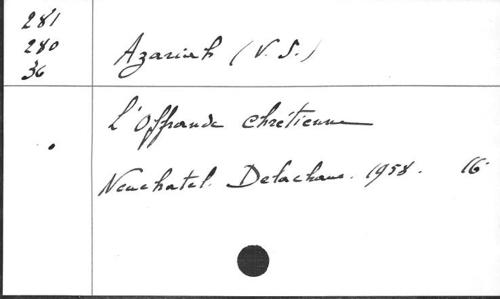 281
280
36
Azariah (V. S.)
L'Offrande chrétienne
Neuchatel. Delachaux. 1958. 16